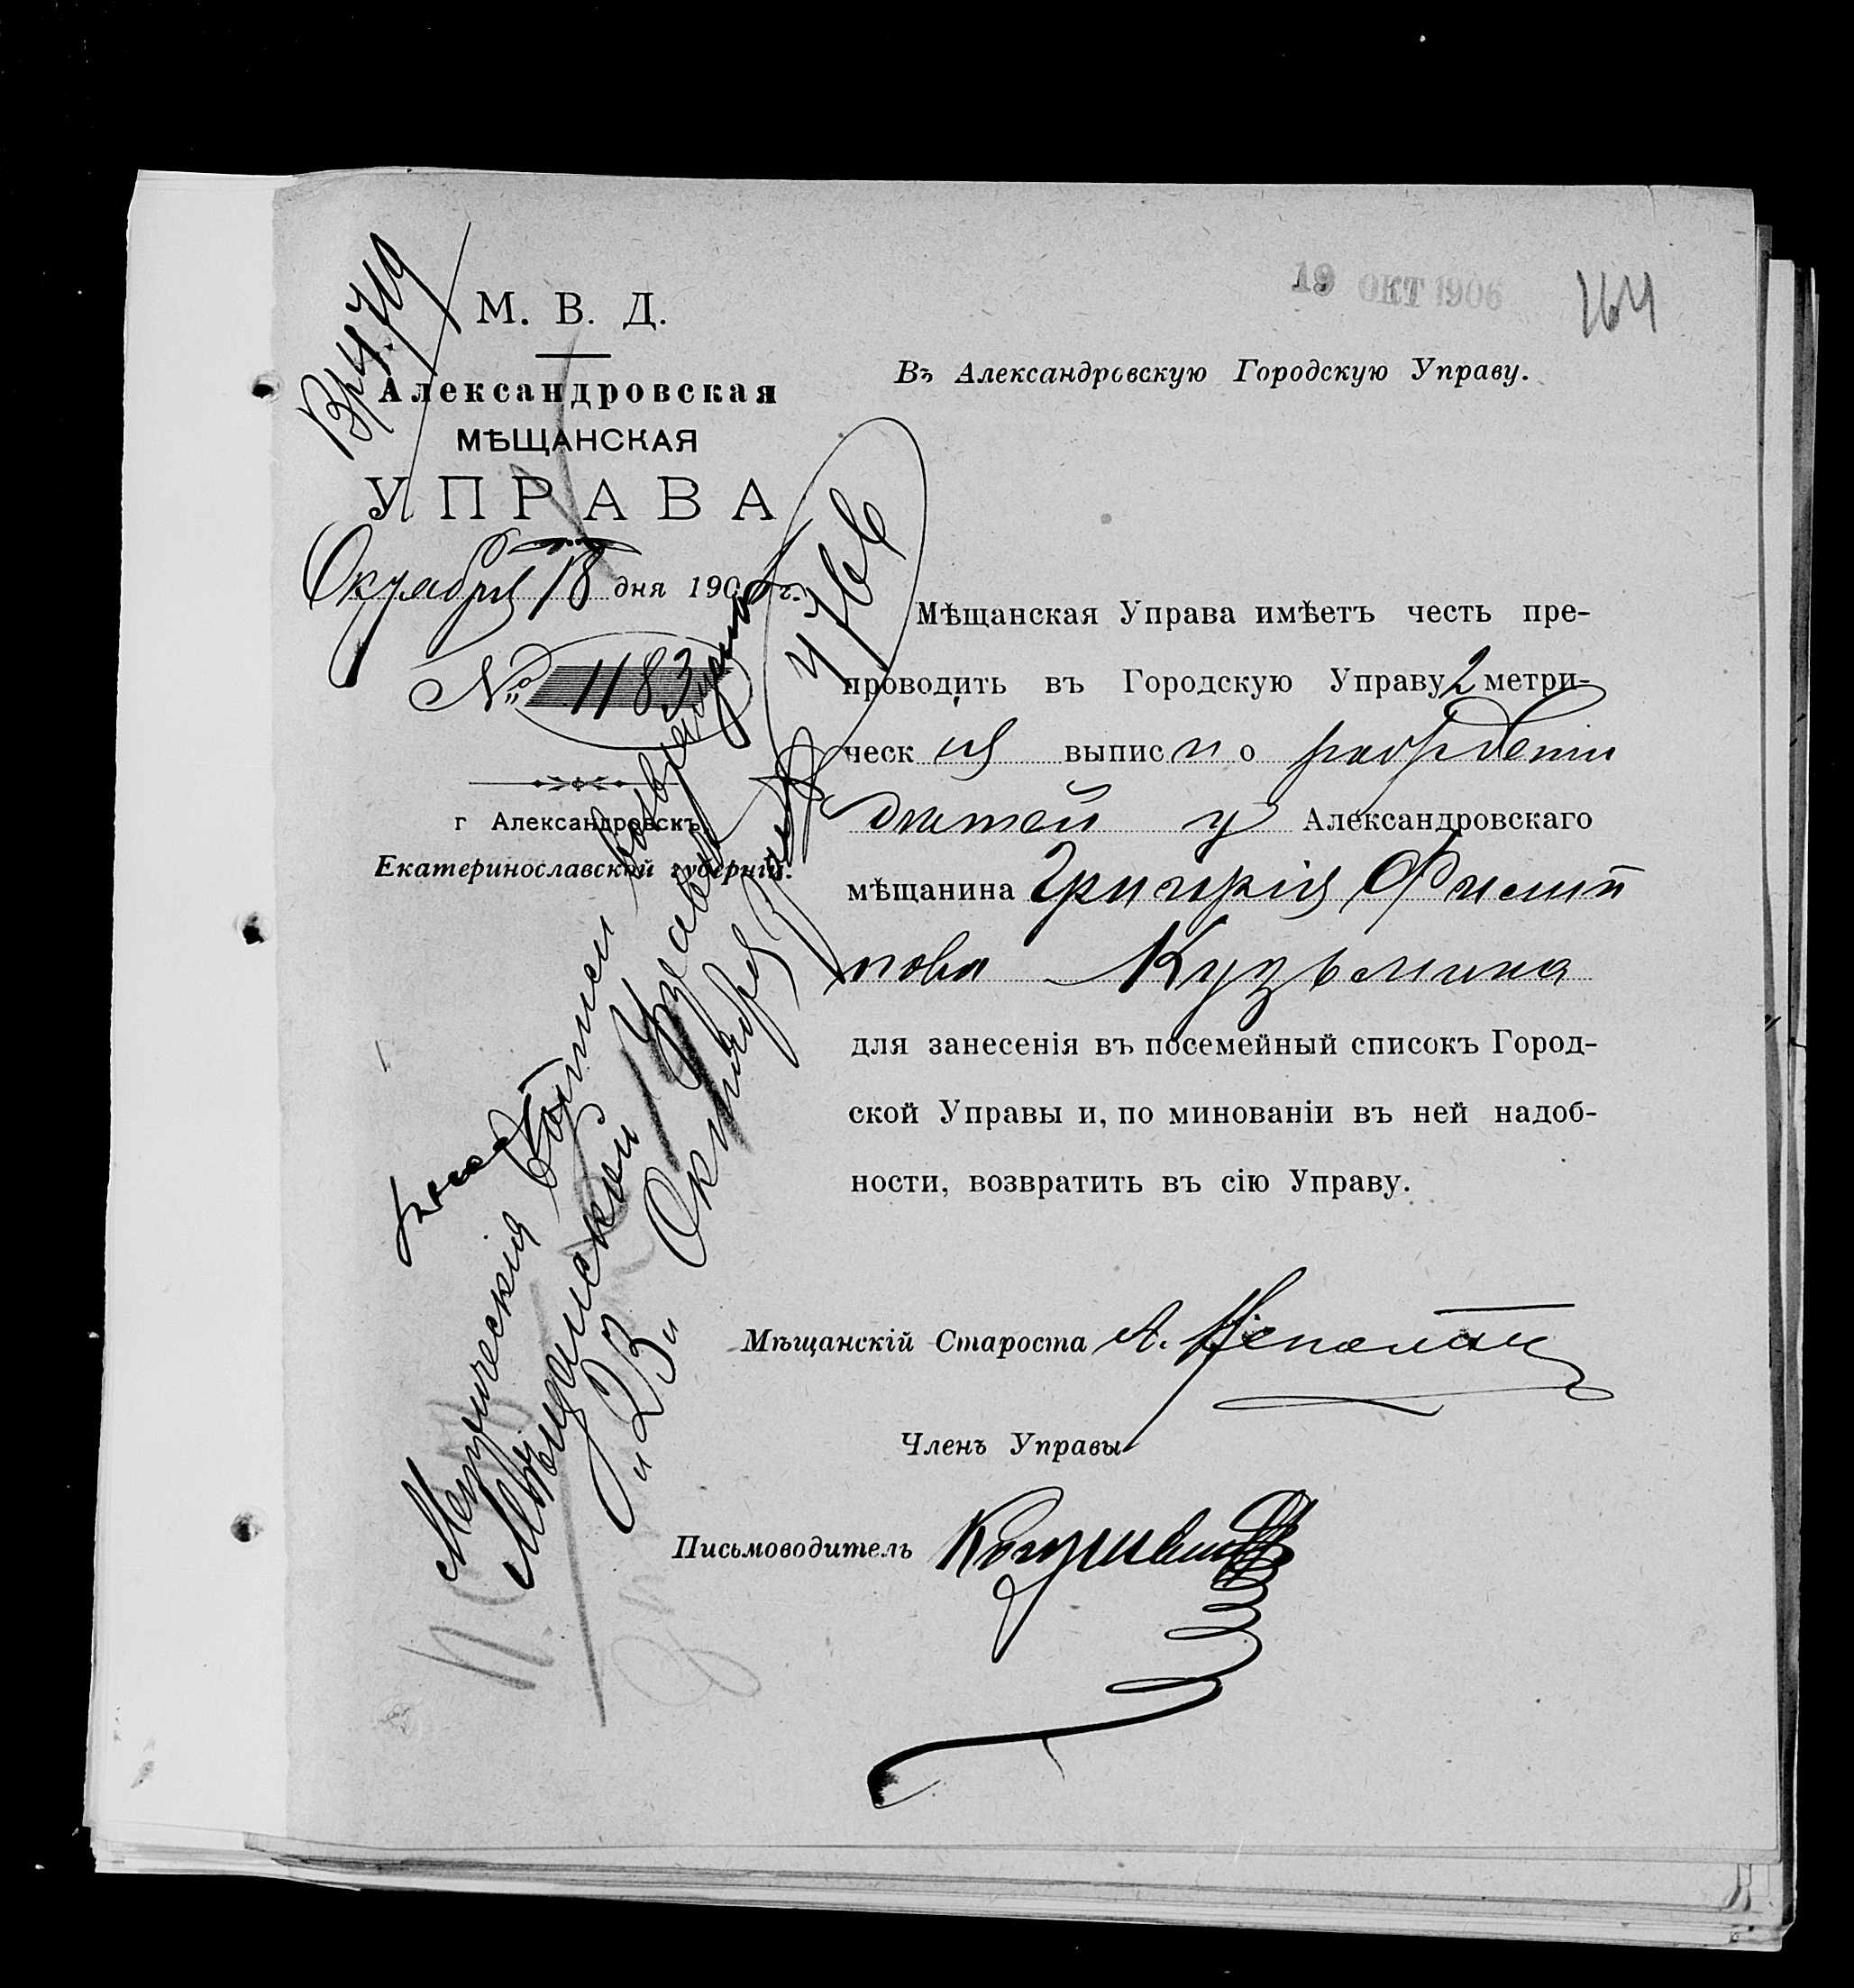 19 ОКТ 1906
164
Вх 4719
М. В. Д.
Александровская
МѢЩАНСКАЯ
УПРАВА
Октября 18 дня 1906 г.
№ 1183
г Александровскъ,
Екатеринославской губерніи.
Въ Александровскую Городскую Управу.
Мѣщанская Управа имѣетъ честь пре-
проводить въ Городскую Управу 2 метри-
ческія выписи о рожденіи
дѣтей у Александровскаго
мѣщанина Григорія Филип
пова Кузьмина
для занесенія въ посемейный списокъ Город-
ской Управы и, по минованіи въ ней надоб-
ности, возвратить въ сію Управу.
Мѣщанскій Староста А.
Членъ Управы
Письмоводитель
Метрическія выписи возвращены
Мѣщанской Управѣ
"23" Октября